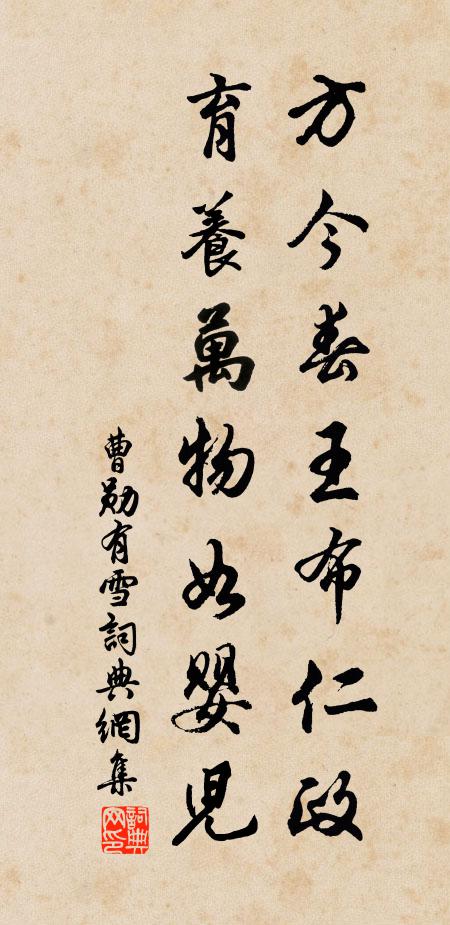 方今春王布仁政
育養萬物如嬰児
曹勛有雪詞典網集
詞典网印